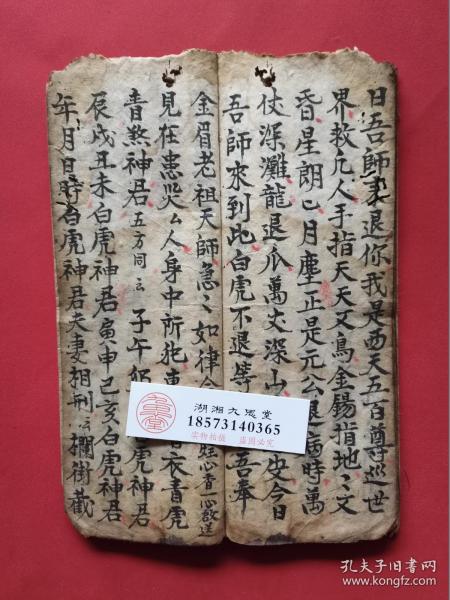 日吾師來退你我是西天五百尊巡世
界救凡人手指天天又鳥金錫指地〻又
昏星朗〻月塵正是元公退病時萬
仗深灘龍退爪萬丈深山
虫今日
吾師來到此白虎不退等
吾奉
金眉老祖天師急〻如律令
姓心香一心啟送
見在患災厶人身中所犯
白衣青虎
青煞神君五方同云子午卯
虎神君
辰戌丑未白虎神君寅申巳亥白虎神君
年月日時白虎神君夫妻相刑云攔街截
湖湘大思堂
18573140365
实物拍摄 盗图必究
孔夫子旧书网
www.kongfz.com